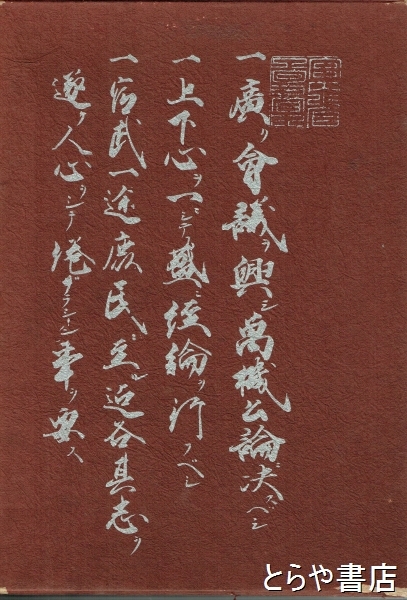 一廣ク會議ヲ興シ萬機公論ニ決スベシ
一上下心ヲ一ニシテ盛ニ經綸ヲ行フベシ
一官武一途庶民ニ至ル迄各其志ヲ
遂ケ人心ヲシテ倦マザラシメン事ヲ要ス
とらや書店